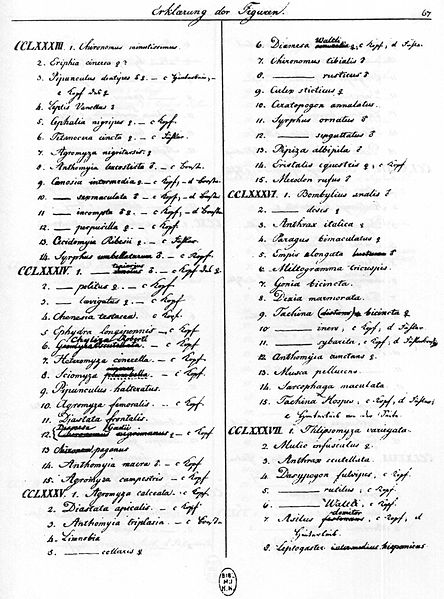 Erklärung der Figuren.
67
CCLXXXIII. 1. Chironomus minutissimus.
2. Eriphia cinerea ♀
3. Pipunculus dentipes ♂♀ - c
c Kopf
4. Sepis Vanellus
5. Cephalia nigripes ♀ - c Kopf.
6. Tetanocera cincta ♀ - c Fühler.
7. Agromyza nigritarsis ♀
8. Anthomyia lacustris ♂ - c
9. Coenosia intermedia ♀ - c Kopf, - d
10. —— sexmaculata ♂ - c Kopf, - d
11. —— incompta ♂♀ - c Kopf, - d
12. —— perpusilla ♀ - c Kopf.
13. Cecidomyia Ribesii ♀ - c Fühler.
14. Syrphus umbellatarum ♂ - c Kopf.
CCLXXXIV. 1. —— ♂ - c Kopf
2. —— politus ♀ - c Kopf.
3. —— laevigatus ♀ - c Kopf.
4. Chenesia testacea. c Kopf.
5. Ephydra longipennis - c Kopf.
6. - c Kopf.
7. Heteromyza cinerella. - c Kopf.
8. Sciomyza - c Kopf.
9. Pipunculus halteratus.
10. Agromyza femoralis - c Kopf.
11. Diastata frontalis.
12. - c Kopf.
13. pagonus
14. Anthomyia macra ♂ - c Kopf.
15. Agromyza campestris - c Kopf.
CCLXXXV. 1. Agromyza calceata. - c Kopf.
2. Diastata apicalis. - c Kopf.
3. Anthomyia triplasia - c
4. Limnobia
5. —— collaris ♀
6. Diamesa Waltli ♀, c Kopf, d Fühler.
7. Chironomus tibialis ♂
8. —— rusticus ♂
9. Culex sticticus ♀
10. Ceratopogon annulatus.
11. Syrphus ornatus ♂
12. —— sexguttatus ♂
13. Pipiza albipila ♂
14. Eristalis equestris ♀, c Kopf
15. Merodon rufus ♂
CCLXXXVI. 1. Bombylius analis ♂
2. —— dives ♀
3. Anthrax italica ♀
4. Paragus bimaculatus ♀
5. Empis elongata ♂
6. Miltogramma tricuspis.
7. Gonia bicincta.
8. Dexia marmorata.
9. Tachina bicincta ♀
10. —— iners, c Kopf, d Fühler
11. —— sybarita, c Kopf, d Fühler
12. Anthomyia cunctans ♀
13. Musca pellucens.
14. Sarcophaga maculata
15. Tachina Hospes, c Kopf, d Fühler,
CCLXXXVII. 1. Thlipsomyza variegata.
2. Mulio infuscatus ♀
3. Anthrax scutellata.
4. Dasypogon fulvipes, c Kopf.
5. —— rutilus, c Kopf.
6. —— Waltli, c Kopf.
7. Asilus domitor, c Kopf, d
8. Leptogaster hispanicus